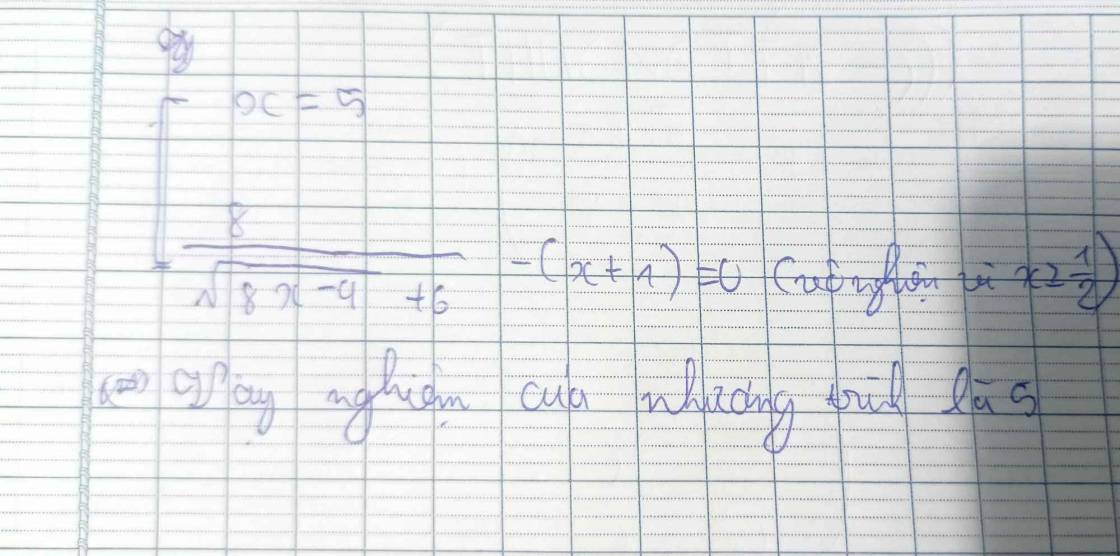 x = 5
8
√8x-4 +6 -(x+1)=0 (vô nghiệm vì x≥1/2)
(=) Vậy nghiệm của phương trình là 5